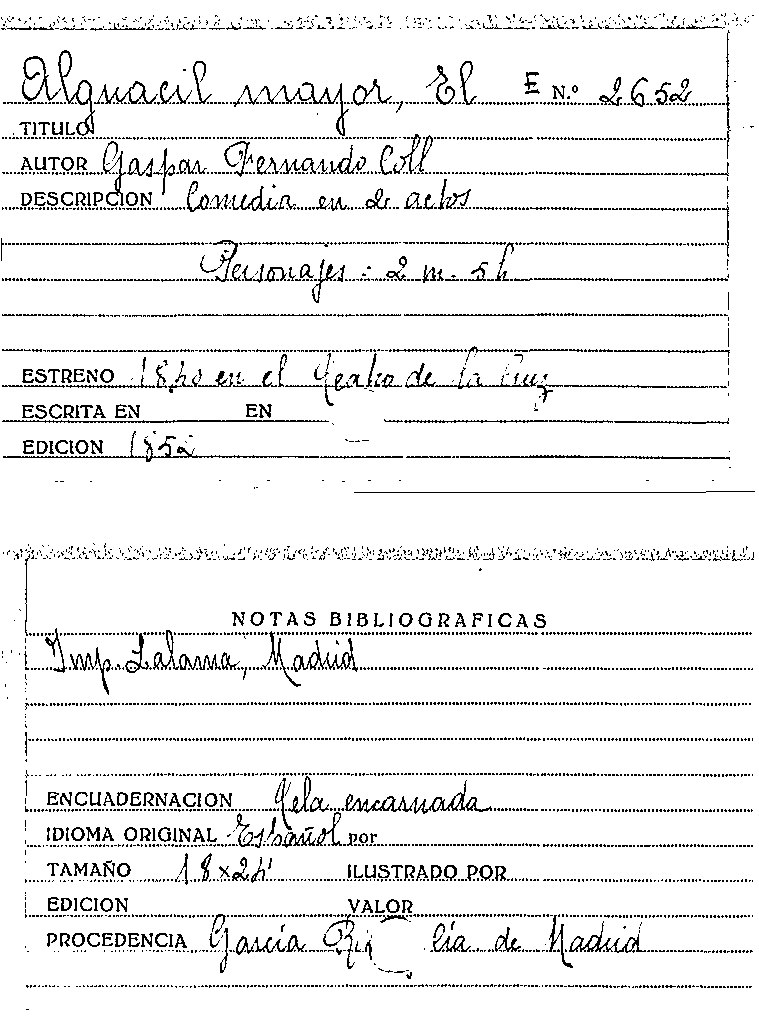 Alguacil mayor, El E N.º 2652
TITULO
AUTOR Gaspar Fernando Coll
DESCRIPCION Comedia en 2 actos
Personajes: 2 m. 5 h
ESTRENO en el Teatro de la Cruz
ESCRITA EN EN
EDICION 1852
NOTAS BIBLIOGRAFICAS
Imp. Lalama, Madrid
ENCUADERNACION Tela encarnada
IDIOMA ORIGINAL Español por
TAMAÑO 18 x 24 ILUSTRADO POR
EDICION VALOR
PROCEDENCIA García de Madrid